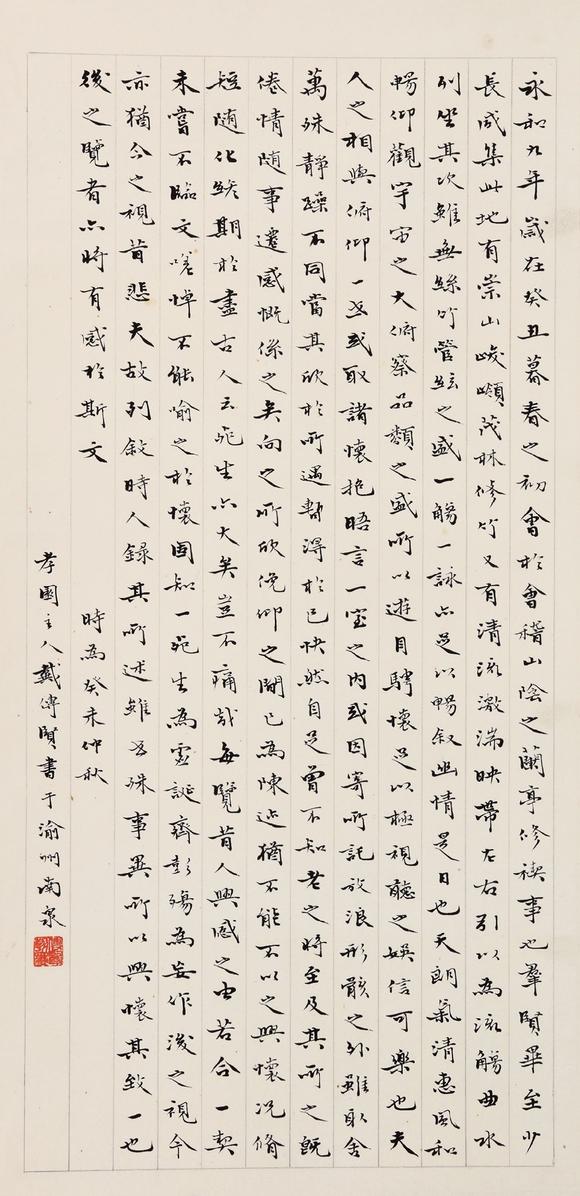 永和九年歲在癸丑暮春之初會於會稽山陰之蘭亭修禊事也羣賢畢至少
長咸集此地有崇山峻嶺茂林修竹又有清流激湍映帶左右引以為流觴曲水
列坐其次雖無絲竹管絃之盛一觴一詠亦足以暢敘幽情是日也天朗氣清惠風和
暢仰觀宇宙之大俯察品類之盛所以遊目騁懷足以極視聽之娛信可樂也夫
人之相與俯仰一世或取諸懷抱晤言一室之內或因寄所託放浪形骸之外雖取舍
萬殊靜躁不同當其欣於所遇暫得於己快然自足曾不知老之將至及其所之既
倦情随事遷感慨係之矣向之所欣俛仰之間已為陳迹猶不能不以之興懷況脩
短随化終期於盡古人云死生亦大矣豈不痛哉每覽昔人興感之由若合一契
未嘗不臨文嗟悼不能喻之於懷固知一死生為虛誕齊彭殤為妄作後之視今
亦猶今之視昔悲夫故列敘時人錄其所述雖世殊事異所以興懷其致一也
後之覽者亦將有感於斯文
時為癸未仲秋
孝園主人戴傳賢書于渝州南泉